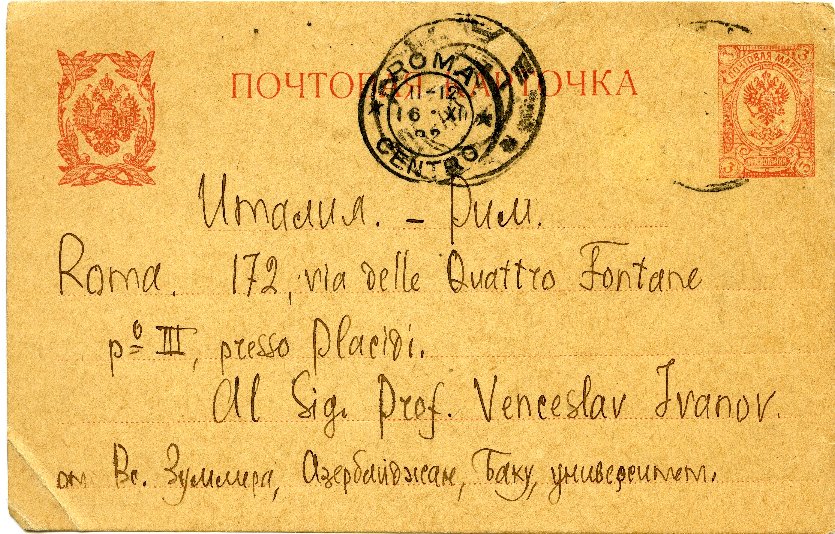 ПОЧТОВАЯ КАРТОЧКА
ROMA
11-12
16 XII
CENTRO
ПОЧТОВАЯ МАРКА
Италия. – Рим.
Roma. 172, via delle Quattro Fontane
pº III, presso Placidi.
Al Sig. Prof. Venceslav Ivanov.
от Вс. Зуммера, Азербайджан, Баку, университет.